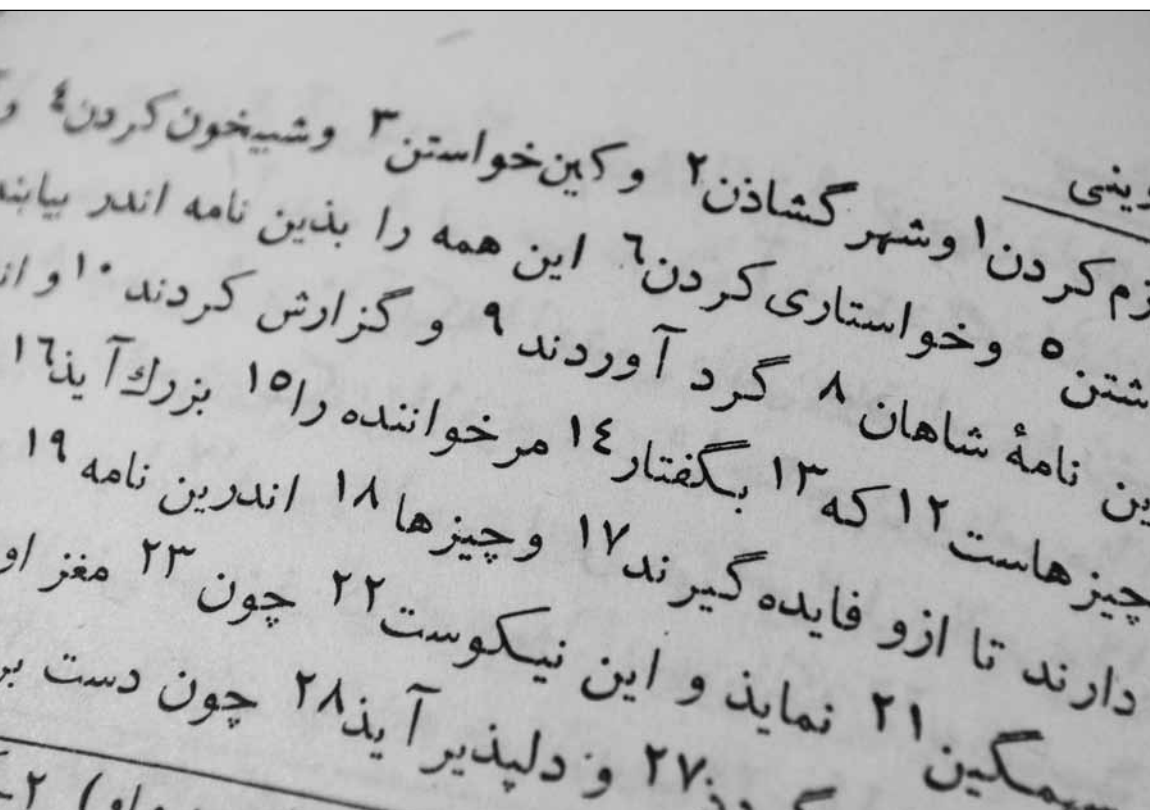 کردن۱ وشهر گشاذن۲ و کین‌خواستن۳ وشبیخون کردن٤
٥ وخواستاری کردن٦ این همه را بذین نامه اندر بیابند
نامهٔ شاهان۸ گرد آوردند۹ و گزارش کردند۱۰ و
چیزهاست۱۲ که۱۳ بگفتار۱٤ مر خواننده را۱٥ بزرك آیذ۱٦
دارند تا ازو فایده گیرند۱۷ وچیزها۱۸ اندرین نامه۱۹
۲۱ نماید و این نیکوست۲۲ چون۲۳ مغز او
۲۷ و دلپذیر آیذ۲۸ چون دست
۲